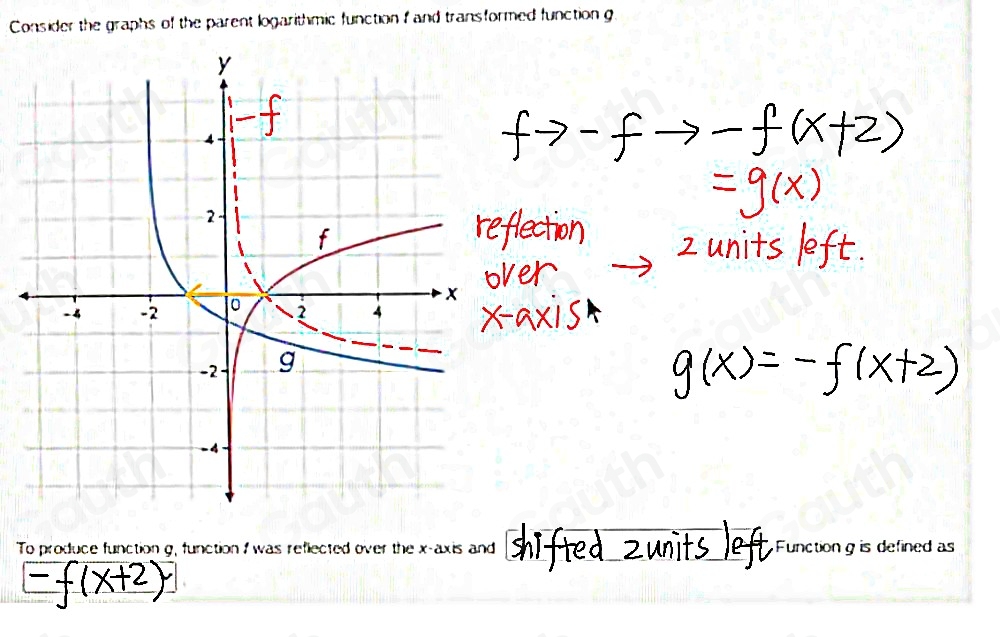 Consider the graphs of the parent logarithmic function f and transformed function g.
y
-f
4
2
f
-4
-2
0
2
4
x
g
-2
-4
f → -f → -f(x+2)
= g(x)
reflection
over
x-axis
→ 2 units left.
g(x) = -f(x+2)
To produce function g, function f was reflected over the x-axis and shifted 2 units left. Function g is defined as
-f(x+2).